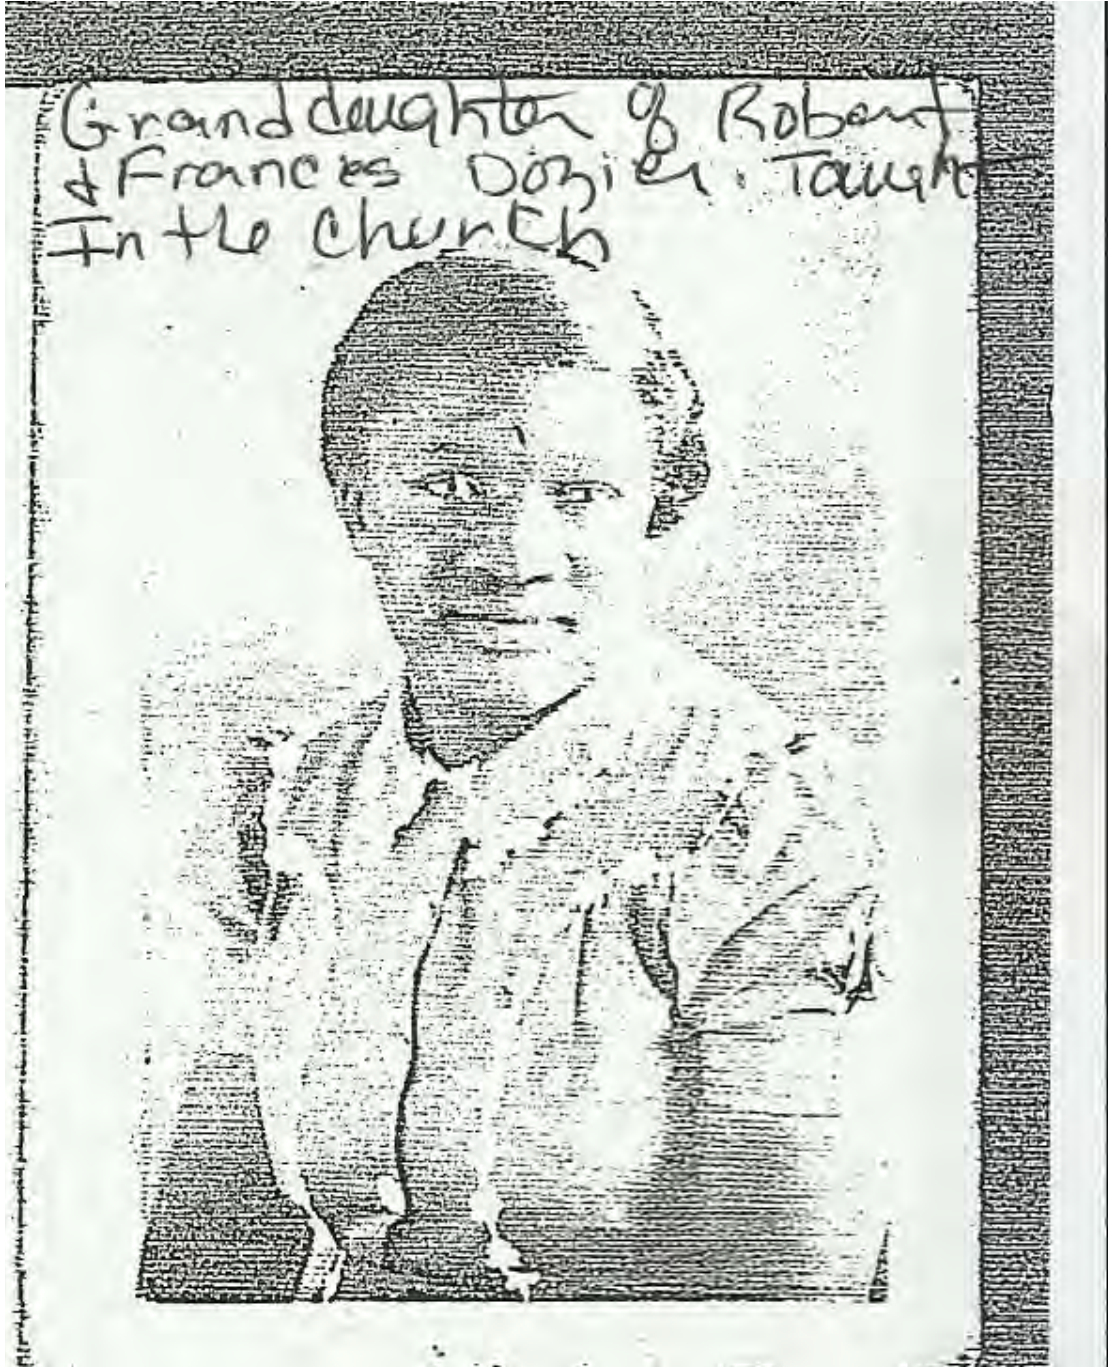 Granddaughter of Robert
& Frances Dozier. Taught
In the church